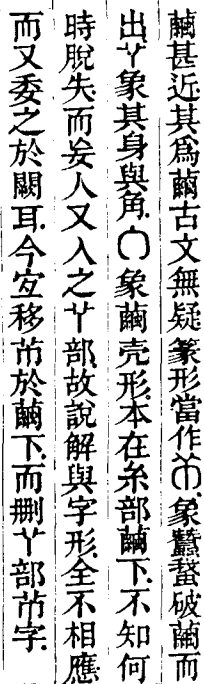 繭甚近其爲繭古文無疑篆形當作𦭝象蠶蛾破繭而
出丫象其身與角冂象繭壳形本在糸部繭下不知何
時脫失而妄人又入之丫部故說解與字形全不相應
而又委之於闕耳今宐移芇於繭下而刪丫部芇字